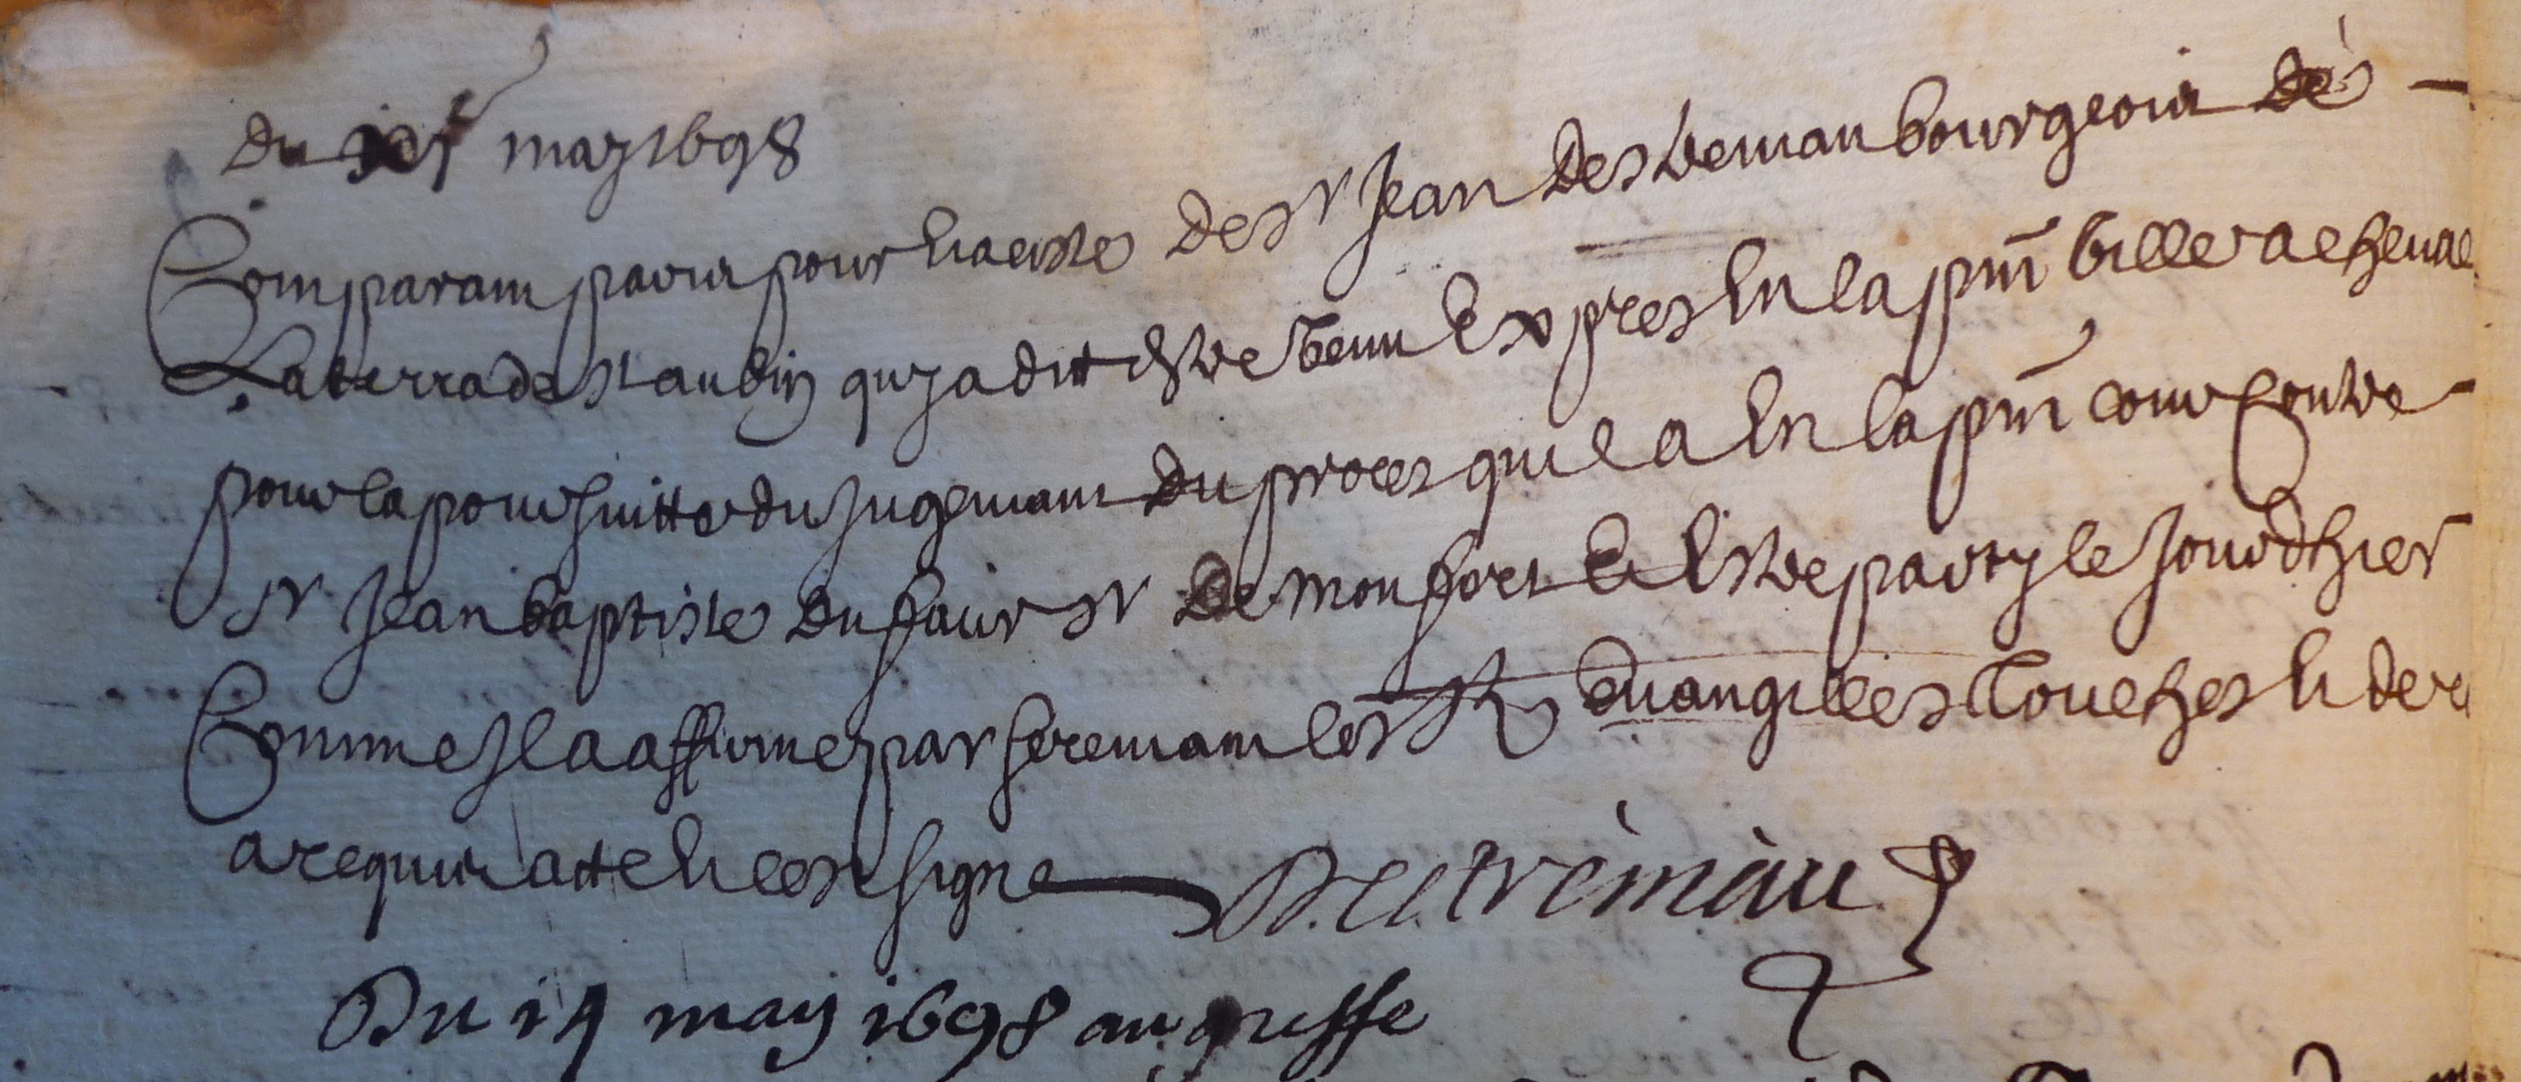 Du may 1698
Comparant pour de sr Jean Destreman bourgeois de
Laterrade st aubin quy a dit estre venu Expres En la pnt ville a cheval
pour la poursuitte du Jugemant du proces quil a En la pnt cour Contre
sr Jean baptiste dufaur sr de monfort Et Estre party le Jour dhier
Comme Il a affirme par seremant les sts Evangilles touches Et de ce
a requis acte Et cest signe Destrèmàu
Du 14 may 1698 au greffe